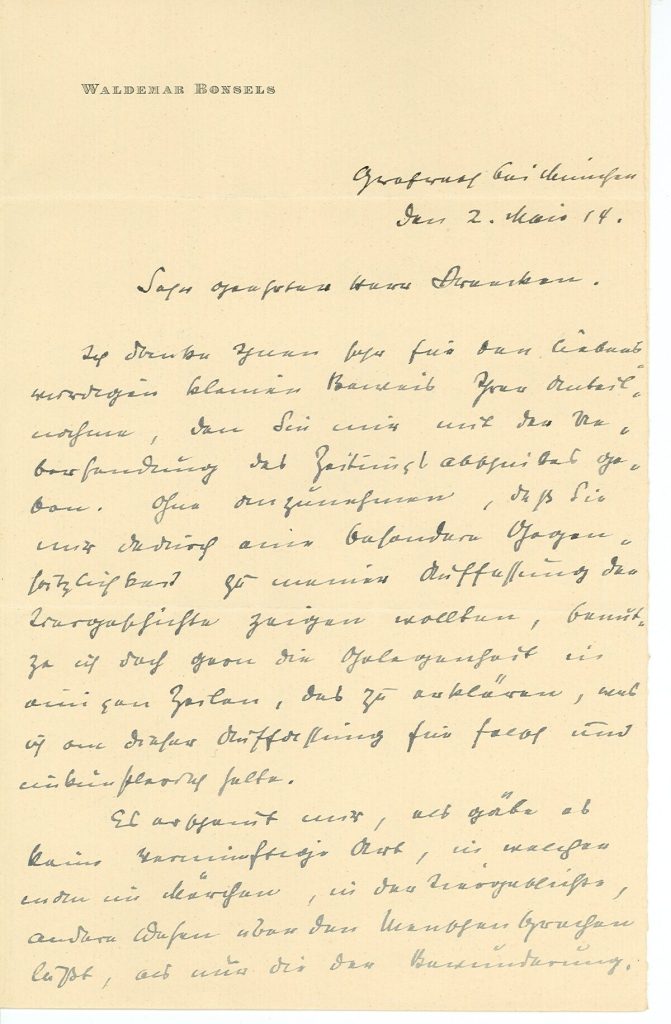 WALDEMAR BONSELS
bei München
den 2. Mai 14.
Sehr geehrter Herr
Ich danke Ihnen sehr für den liebens
würdigen kleinen Beweis Ihrer Anteil-
nahme, den Sie mir mit der Ue-
bersendung des Zeitungsabschnittes ge-
ben. Ohne anzunehmen, daß Sie
mir dadurch eine besondere Gegen-
sätzlichkeit zu meiner Auffassung der
Tiergeschichte zeigen wollten, benut-
ze ich doch gern die Gelegenheit in
einigen Zeilen, das zu erklären, was
ich an dieser Auffassung für falsch und
unkünstlerisch halte.
Es erscheint mir, als gäbe es
keine vernünftige Art, in welcher
man im Märchen, in der Tiergeschichte,
andere Wesen über den Menschen sprechen
läßt, als nur die der Bewunderung.